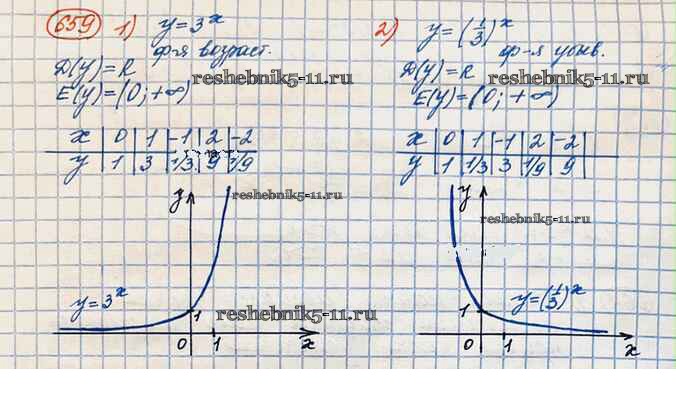 659 1) y = 3^x
ф-я возраст.
D(y) = R
E(y) = (0; +∞)
x | 0 | 1 | -1 | 2 | -2
y | 1 | 3 | 1/3 | 9 | 1/9
y
y = 3^x
1
0 1 x
2) y = (1/3)^x
ф-я убыв.
D(y) = R
E(y) = (0; +∞)
x | 0 | 1 | -1 | 2 | -2
y | 1 | 1/3 | 3 | 1/9 | 9
y
1
y = (1/3)^x
0 1 x
reshebnik5-11.ru
reshebnik5-11.ru
reshebnik5-11.ru
reshebnik5-11.ru
reshebnik5-11.ru